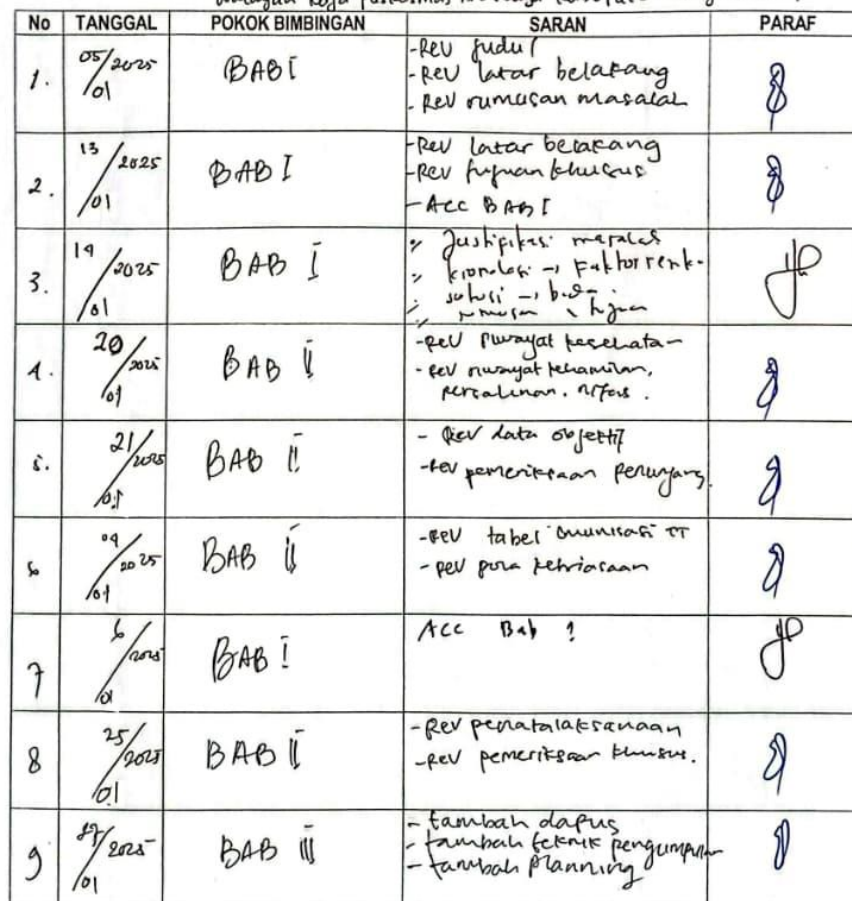 No TANGGAL POKOK BIMBINGAN SARAN PARAF
1. 05/01 2025 BAB I - Rev judul
- Rev latar belakang
- Rev rumusan masalah
2. 13/01 2025 BAB I - Rev latar belakang
- Rev tujuan khusus
- Acc BAB I
3. 14/01 2025 BAB I Justifikasi masalah
kronologi → Faktor
solusi →
rumusan tujuan
4. 20/01 2025 BAB II - Rev riwayat kesehatan
- Rev riwayat kehamilan,
persalinan, nifas.
5. 21/01 2025 BAB II - Rev data objektif
- Rev pemeriksaan penunjang.
6 04/01 2025 BAB II - Rev tabel imunisasi TT
- Rev pola kebiasaan
7 6/01 2025 BAB I Acc Bab 1
8 25/01 2025 BAB II - Rev penatalaksanaan
- Rev pemeriksaan khusus.
9 27/01 2025 BAB III - tambah dapus
- tambah teknik pengumpulan
- tambah planning